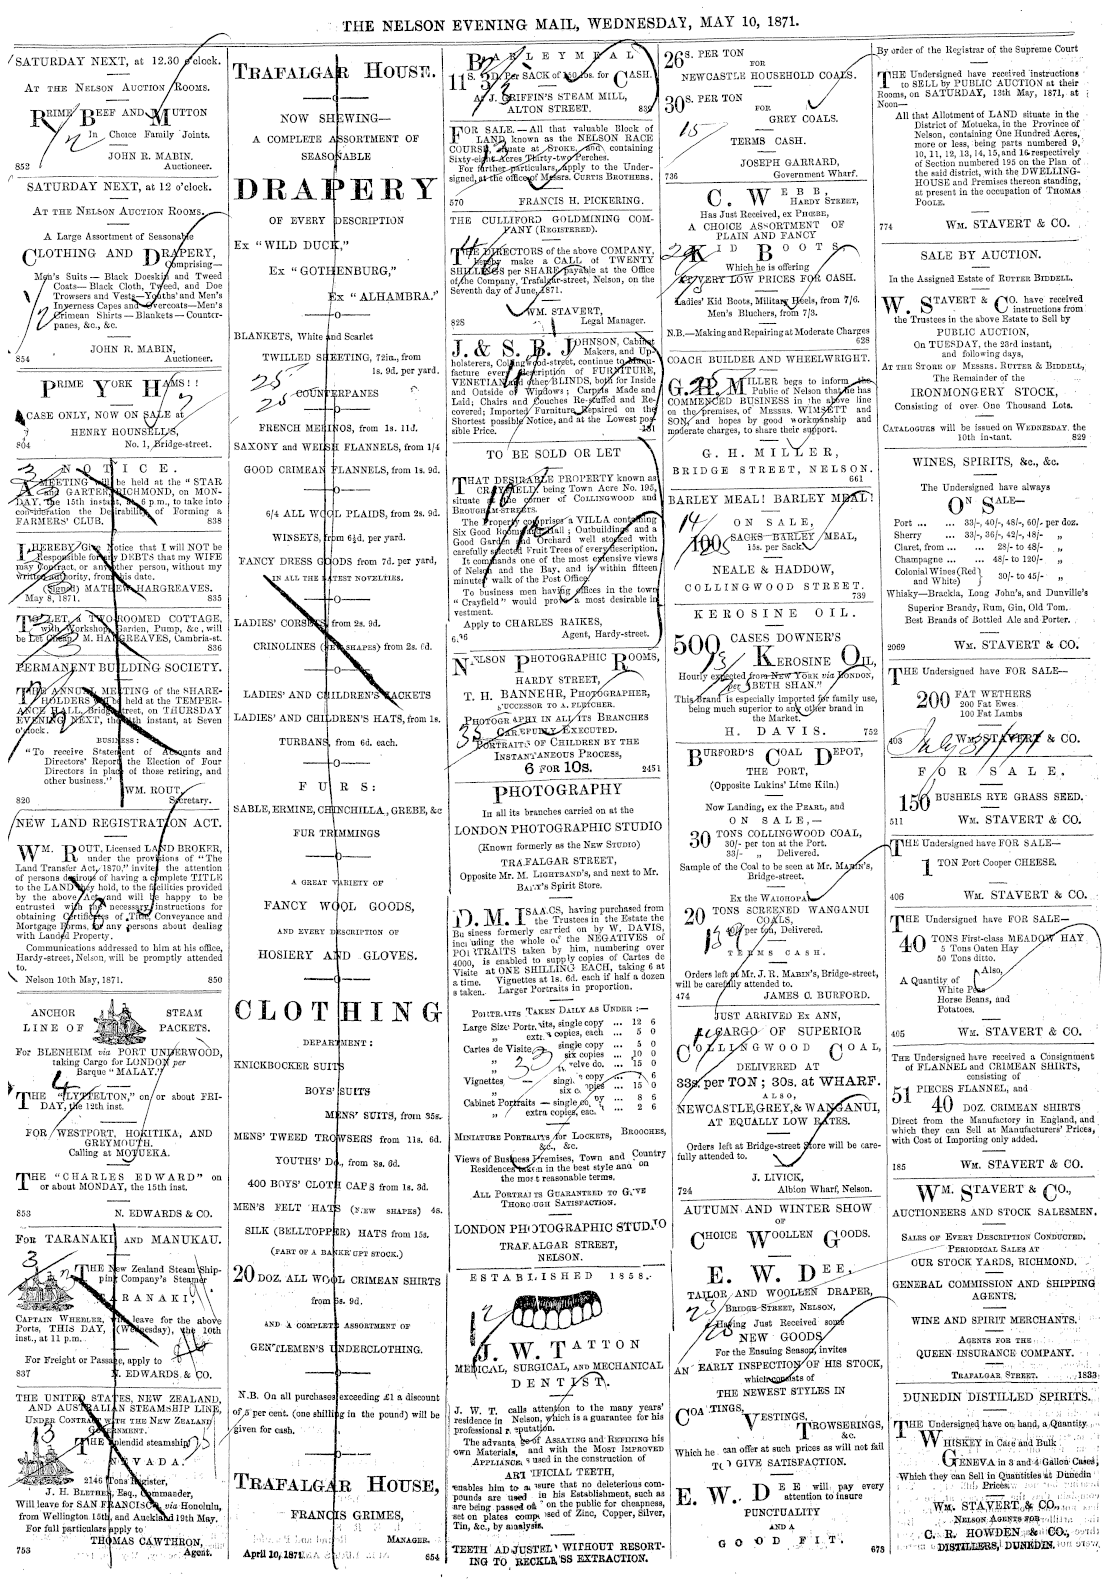 THE NELSON EVENING MAIL, WEDNESDAY, MAY 10, 1871.
SATURDAY NEXT, at 12.30 o'clock.
AT THE NELSON AUCTION ROOMS.
PRIME BEEF AND MUTTON
In Choice Family Joints.
JOHN R. MABIN.
852 Auctioneer.
SATURDAY NEXT, at 12 o'clock.
AT THE NELSON AUCTION ROOMS.
A Large Assortment of Seasonable
CLOTHING AND DRAPERY,
Comprising—
Men's Suits — Black Doeskin and Tweed
Coats— Black Cloth, Tweed, and Doe
Trowsers and Vests—Youths' and Men's
Inverness Capes and Overcoats—Men's
Crimean Shirts — Blankets — Counter-
panes, &c., &c.
JOHN R. MABIN,
854 Auctioneer.
PRIME YORK HAMS!!
A CASE ONLY, NOW ON SALE at
HENRY HOUNSELL'S,
804 No. 1, Bridge-street.
NOTICE.
A MEETING will be held at the "STAR
and GARTER, RICHMOND, on MON-
DAY, the 15th instant, at 6 p.m., to take into
consideration the Desirability of Forming a
FARMERS' CLUB. 838
I HEREBY Give Notice that I will NOT be
Responsible for any DEBTS that my WIFE
may Contract, or any other person, without my
written authority, from this date.
(Signed) MATHEW HARGREAVES.
May 8, 1871. 835
TO LET, a TWO-ROOMED COTTAGE,
with Workshop, Garden, Pump, &c., will
be Let Cheap. M. HARGREAVES, Cambria-st.
836
PERMANENT BUILDING SOCIETY.
THE ANNUAL MEETING of the SHARE-
HOLDERS will be held at the TEMPER-
ANCE HALL, Bridge-street, on THURSDAY
EVENING NEXT, the instant, at Seven
o'clock.
BUSINESS:
"To receive Statement of Accounts and
Directors' Report, the Election of Four
Directors in place of those retiring, and
other business."
WM. ROUT,
820 Secretary.
NEW LAND REGISTRATION ACT.
WM. ROUT, Licensed LAND BROKER,
under the provisions of "The
Land Transfer Act, 1870," invites the attention
of persons desirous of having a complete TITLE
to the LAND they hold, to the facilities provided
by the above Act, and will be happy to be
entrusted with the necessary instructions for
obtaining Certificates of Title, Conveyance and
Mortgage Forms, for any persons about dealing
with Landed Property.
Communications addressed to him at his office,
Hardy-street, Nelson, will be promptly attended
to.
Nelson 10th May, 1871. 850
ANCHOR STEAM
LINE OF PACKETS.
For BLENHEIM via PORT UNDERWOOD,
taking Cargo for LONDON per
Barque "MALAY."
4
THE "LYTTELTON," on or about FRI-
DAY, the 12th inst.
FOR WESTPORT, HOKITIKA, AND
GREYMOUTH,
Calling at MOTUEKA.
THE "CHARLES EDWARD" on
or about MONDAY, the 15th inst.
853 N. EDWARDS & CO.
FOR TARANAKI AND MANUKAU.
3
THE New Zealand Steam Ship-
ping Company's Steamer
TARANAKI,
CAPTAIN WHEELER, will leave for the above
Ports, THIS DAY, (Wednesday), the 10th
inst., at 11 p.m.
For Freight or Passage, apply to
837 N. EDWARDS & CO.
THE UNITED STATES, NEW ZEALAND,
AND AUSTRALIAN STEAMSHIP LINE,
UNDER CONTRACT WITH THE NEW ZEALAND
GOVERNMENT.
13
THE splendid steamship
NEVADA.
2146 Tons Register,
J. H. BLETHEN, Esq., Commander,
Will leave for SAN FRANCISCO, via Honolulu,
from Wellington 15th, and Auckland 19th May.
For full particulars apply to
THOMAS CAWTHRON,
753 Agent.
TRAFALGAR HOUSE.
NOW SHEWING—
A COMPLETE ASSORTMENT OF
SEASONABLE
DRAPERY
OF EVERY DESCRIPTION
Ex "WILD DUCK,"
Ex "GOTHENBURG,"
Ex "ALHAMBRA."
BLANKETS, White and Scarlet
TWILLED SHEETING, 72in., from
1s. 9d. per yard.
25
COUNTERPANES
FRENCH MERINOS, from 1s. 11d.
SAXONY and WELSH FLANNELS, from 1/4
GOOD CRIMEAN FLANNELS, from 1s. 9d.
6/4 ALL WOOL PLAIDS, from 2s. 9d.
WINSEYS, from 6½d. per yard.
FANCY DRESS GOODS from 7d. per yard,
IN ALL THE LATEST NOVELTIES.
LADIES' CORSETS from 2s. 9d.
CRINOLINES (NEW SHAPES) from 2s. 6d.
LADIES' AND CHILDREN'S JACKETS
LADIES' AND CHILDREN'S HATS, from 1s.
TURBANS, from 6d. each.
FURS:
SABLE, ERMINE, CHINCHILLA, GREBE, &c
FUR TRIMMINGS
A GREAT VARIETY OF
FANCY WOOL GOODS,
AND EVERY DESCRIPTION OF
HOSIERY AND GLOVES.
CLOTHING
DEPARTMENT:
KNICKBOCKER SUITS
BOYS' SUITS
MENS' SUITS, from 35s.
MENS' TWEED TROWSERS from 11s. 6d.
YOUTHS' Do., from 8s. 6d.
400 BOYS' CLOTH CAPS from 1s. 3d.
MEN'S FELT HATS (NEW SHAPES) 4s.
SILK (BELLTOPPER) HATS from 15s.
(PART OF A BANKRUPT STOCK.)
20 DOZ. ALL WOOL CRIMEAN SHIRTS
from 6s. 9d.
AND A COMPLETE ASSORTMENT OF
GENTLEMEN'S UNDERCLOTHING.
N.B. On all purchases exceeding £1 a discount
of 5 per cent. (one shilling in the pound) will be
given for cash.
TRAFALGAR HOUSE,
FRANCIS GRIMES,
MANAGER.
April 10, 1871. 654
BARLEYMEAL
11s. 3D. Per SACK of lbs. for CASH.
At J. GRIFFIN'S STEAM MILL,
ALTON STREET. 839
FOR SALE.— All that valuable Block of
LAND known as the NELSON RACE
COURSE, situate at STOKE, and containing
Sixty-eight Acres Thirty-two Perches.
For further particulars, apply to the Under-
signed, at the office of Messrs. CURTIS BROTHERS.
570 FRANCIS H. PICKERING.
THE CULLIFORD GOLDMINING COM-
PANY (REGISTERED).
THE DIRECTORS of the above COMPANY,
hereby make a CALL of TWENTY
SHILLINGS per SHARE payable at the Office
of the Company, Trafalgar-street, Nelson, on the
Seventh day of June, 1871.
WM. STAVERT,
828 Legal Manager.
J. & S. B. JOHNSON, Cabinet
Makers, and Up-
holsterers, Collingwood-street, continue to Manu-
facture every description of FURNITURE,
VENETIAN and other BLINDS, both for Inside
and Outside of Widows; Carpets Made and
Laid; Chairs and Couches Re-stuffed and Re-
covered; Imported Furniture Repaired on the
Shortest possible Notice, and at the Lowest pos-
sible Price. 131
TO BE SOLD OR LET
THAT DESIRABLE PROPERTY known as
CRAYFIELD, being Town Acre No. 195,
situate at the corner of COLLINGWOOD and
BROUGHAM-STREETS.
The Property comprises a VILLA containing
Six Good Rooms and Hall; Outbuildings and a
Good Garden and Orchard well stocked with
carefully selected Fruit Trees of every description.
It commands one of the most extensive views
of Nelson and the Bay, and is within fifteen
minutes' walk of the Post Office.
To business men having offices in the town
"Crayfield" would prove a most desirable in-
vestment.
Apply to CHARLES RAIKES,
Agent, Hardy-street.
NELSON PHOTOGRAPHIC ROOMS,
HARDY STREET,
T. H. BANNEHR, PHOTOGRAPHER,
SUCCESSOR TO A. FLETCHER.
PHOTOGRAPHY IN ALL ITS BRANCHES
CAREFULLY EXECUTED.
PORTRAITS OF CHILDREN BY THE
INSTANTANEOUS PROCESS,
6 FOR 10S. 2451
PHOTOGRAPHY
In all its branches carried on at the
LONDON PHOTOGRAPHIC STUDIO
(Known formerly as the New Studio)
TRAFALGAR STREET,
Opposite Mr. M. LIGHTBAND'S, and next to Mr.
BALY'S Spirit Store.
D. M. ISAACS, having purchased from
the Trustees in the Estate the
Business formerly carried on by W. DAVIS,
including the whole of the NEGATIVES of
PORTRAITS taken by him, numbering over
4000, is enabled to supply copies of Cartes de
Visite at ONE SHILLING EACH, taking 6 at
a time. Vignettes at 1s. 6d. each if half a dozen
s taken. Larger Portraits in proportion.
PORTRAITS TAKEN DAILY AS UNDER:—
Large Size Portraits, single copy ... 12 6
„ extra copies, each ... 5 0
Cartes de Visite, single copy ... 5 0
„ six copies ... 10 0
„ twelve do. ... 15 0
Vignettes — single copy ... 7 6
„ six copies ... 15 0
Cabinet Portraits — single copy ... 8 6
„ extra copies, eac. ... 2 6
MINIATURE PORTRAITS for LOCKETS, BROOCHES,
&c., &c.
Views of Business Premises, Town and Country
Residences taken in the best style and on
the most reasonable terms.
ALL PORTRAITS GUARANTEED TO GIVE
THOROUGH SATISFACTION.
LONDON PHOTOGRAPHIC STUDIO
TRAFALGAR STREET,
NELSON.
ESTABLISHED 1858.
12
J. W. TATTON
MEDICAL, SURGICAL, AND MECHANICAL
DENTIST.
J. W. T. calls attention to the many years'
residence in Nelson, which is a guarantee for his
professional reputation.
The advantage of ASSAYING and REFINING his
own Materials, and with the MOST IMPROVED
APPLIANCES used in the construction of
ARTIFICIAL TEETH,
enables him to assure that no deleterious com-
pounds are used in his Establishment, such as
are being passed off on the public for cheapness,
set on plates composed of Zinc, Copper, Silver,
Tin, &c., by analysis.
TEETH ADJUSTED WITHOUT RESORT-
ING TO RECKLESS EXTRACTION.
26S. PER TON
FOR
NEWCASTLE HOUSEHOLD COALS.
30S. PER TON
FOR
GREY COALS.
15
TERMS CASH.
JOSEPH GARRARD,
736 Government Wharf.
C. WEBB,
HARDY STREET,
Has Just Received, ex PHŒBE,
A CHOICE ASSORTMENT OF
PLAIN AND FANCY
KID BOOTS
Which he is offering
AT VERY LOW PRICES FOR CASH.
Ladies' Kid Boots, Military Heels, from 7/6.
Men's Bluchers, from 7/3.
N.B.—Making and Repairing at Moderate Charges
628
COACH BUILDER AND WHEELWRIGHT.
G. H. MILLER begs to inform the
Public of Nelson that he has
COMMENCED BUSINESS in the above line
on the premises, of Messrs. WIMSETT and
SON, and hopes by good workmanship and
moderate charges, to share their support.
G. H. MILLER,
BRIDGE STREET, NELSON.
661
BARLEY MEAL! BARLEY MEAL!
14
ON SALE,
100 SACKS BARLEY MEAL,
15s. per Sack.
NEALE & HADDOW,
COLLINGWOOD STREET.
739
KEROSINE OIL.
500 CASES DOWNER'S
KEROSINE OIL,
Hourly expected from NEW YORK via LONDON,
per "BETH SHAN."
This Brand is especially imported for family use,
being much superior to any other brand in
the Market.
H. DAVIS. 752
BURFORD'S COAL DEPOT,
THE PORT,
(Opposite Lukins' Lime Kiln.)
Now Landing, ex the PEARL, and
ON SALE,—
30 TONS COLLINGWOOD COAL,
30/- per ton at the Port.
33/- „ Delivered.
Sample of the Coal to be seen at Mr. MABIN'S,
Bridge-street.
Ex the WAIOHOPAI
20 TONS SCREENED WANGANUI
COALS,
per ton, Delivered.
TERMS CASH.
Orders left at Mr. J. R. MABIN'S, Bridge-street,
will be carefully attended to.
474 JAMES C. BURFORD.
JUST ARRIVED Ex ANN,
CARGO OF SUPERIOR
COLLINGWOOD COAL,
DELIVERED AT
33s. PER TON; 30s. AT WHARF.
ALSO,
NEWCASTLE, GREY, & WANGANUI,
AT EQUALLY LOW RATES.
Orders left at Bridge-street Store will be care-
fully attended to.
J. LIVICK,
724 Albion Wharf, Nelson.
AUTUMN AND WINTER SHOW
OF
CHOICE WOOLLEN GOODS.
E. W. DEE,
TAILOR AND WOOLLEN DRAPER,
BRIDGE-STREET, NELSON,
Having Just Received some
NEW GOODS
For the Ensuing Season, invites
AN EARLY INSPECTION OF HIS STOCK,
which consists of
THE NEWEST STYLES IN
COATINGS,
VESTINGS,
TROWSERINGS,
&c.
Which he can offer at such prices as will not fail
TO GIVE SATISFACTION.
E. W. DEE will pay every
attention to insure
PUNCTUALITY
AND A
GOOD FIT. 678
By order of the Registrar of the Supreme Court
THE Undersigned have received instructions
to SELL by PUBLIC AUCTION at their
Rooms, on SATURDAY, 13th May, 1871, at
Noon—
All that Allotment of LAND situate in the
District of Motueka, in the Province of
Nelson, containing One Hundred Acres,
more or less, being parts numbered 9,
10, 11, 12, 13, 14, 15, and 16 respectively
of Section numbered 195 on the Plan of
the said district, with the DWELLING-
HOUSE and Premises thereon standing,
at present in the occupation of THOMAS
POOLE.
774 WM. STAVERT & CO.
SALE BY AUCTION.
In the Assigned Estate of RUTTER BIDDELL.
W. STAVERT & CO. have received
instructions from
the Trustees in the above Estate to Sell by
PUBLIC AUCTION,
On TUESDAY, the 23rd instant,
and following days,
AT THE STORE OF MESSRS. RUTTER & BIDDELL,
The Remainder of the
IRONMONGERY STOCK,
Consisting of over One Thousand Lots.
CATALOGUES will be issued on WEDNESDAY, the
10th instant. 829
WINES, SPIRITS, &c., &c.
The Undersigned have always
ON SALE—
Port ... ... 33/-, 40/-, 48/-, 60/- per doz.
Sherry ... 33/-, 36/-, 42/-, 48/- „
Claret, from ... ... 28/- to 48/- „
Champagne ... ... 48/- to 120/- „
Colonial Wines (Red and White) } 30/- to 45/- „
Whisky—Brackla, Long John's, and Dunville's
Superior Brandy, Rum, Gin, Old Tom.
Best Brands of Bottled Ale and Porter.
2069 WM. STAVERT & CO.
THE Undersigned have FOR SALE—
200 FAT WETHERS
200 Fat Ewes
100 Fat Lambs
403 WM. STAVERT & CO.
FOR SALE.
150 BUSHELS RYE GRASS SEED.
511 WM. STAVERT & CO.
THE Undersigned have FOR SALE—
1 TON Port Cooper CHEESE.
406 WM. STAVERT & CO.
THE Undersigned have FOR SALE—
40 TONS First-class MEADOW HAY
5 Tons Oaten Hay
50 Tons ditto.
Also,
A Quantity of
White Peas
Horse Beans, and
Potatoes.
405 WM. STAVERT & CO.
THE Undersigned have received a Consignment
of FLANNEL and CRIMEAN SHIRTS,
consisting of
51 PIECES FLANNEL, and
40 DOZ. CRIMEAN SHIRTS
Direct from the Manufactory in England, and
which they can Sell at Manufacturers' Prices,
with Cost of Importing only added.
185 WM. STAVERT & CO.
WM. STAVERT & CO.,
AUCTIONEERS AND STOCK SALESMEN.
SALES OF EVERY DESCRIPTION CONDUCTED.
PERIODICAL SALES AT
OUR STOCK YARDS, RICHMOND.
GENERAL COMMISSION AND SHIPPING
AGENTS.
WINE AND SPIRIT MERCHANTS.
AGENTS FOR THE
QUEEN INSURANCE COMPANY.
TRAFALGAR STREET. 1833
DUNEDIN DISTILLED SPIRITS.
THE Undersigned have on hand, a Quantity
WHISKEY in Case and Bulk
GENEVA in 3 and 4 Gallon Cases,
Which they can Sell in Quantities at Dunedin
Prices.
WM. STAVERT & CO.,
NELSON AGENTS FOR
C. R. HOWDEN & CO.,
DISTILLERS, DUNEDIN.